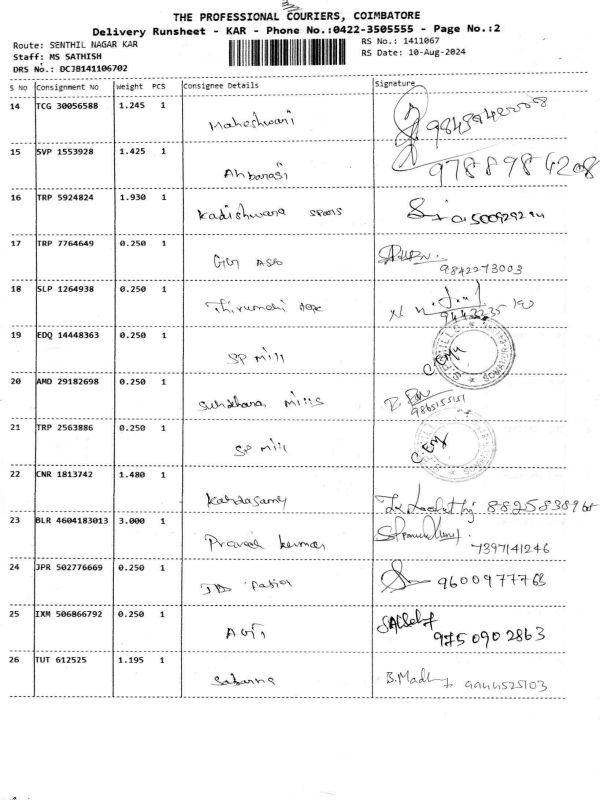 THE PROFESSIONAL COURIERS, COIMBATORE
Delivery Runsheet - KAR - Phone No.:0422-3505555 - Page No.:2
Route: SENTHIL NAGAR KAR
RS No.: 1411067
Staff: MS SATHISH
RS Date: 10-Aug-2024
DRS No.: DCJB141106702
S No Consignment No Weight PCS Consignee Details Signature
14 TCG 30056588 1.245 1 Maheshwari
15 SVP 1553928 1.425 1 9788984208
16 TRP 5924824 1.930 1 Kadishwara
17 TRP 7764649 0.250 1 9842273003
18 SLP 1264938 0.250 1
19 EDQ 14448363 0.250 1 SP Mill
20 AMD 29182698 0.250 1 mills 9865155151
21 TRP 2563886 0.250 1 SP Mill
22 CNR 1813742 1.480 1 Kandasamy
23 BLR 4604183013 3.000 1 Praveen kumar 7397141246
24 JPR 502776669 0.250 1 9600977768
25 IXM 506866792 0.250 1 9750902863
26 TUT 612525 1.195 1 B.Madh 9944525103